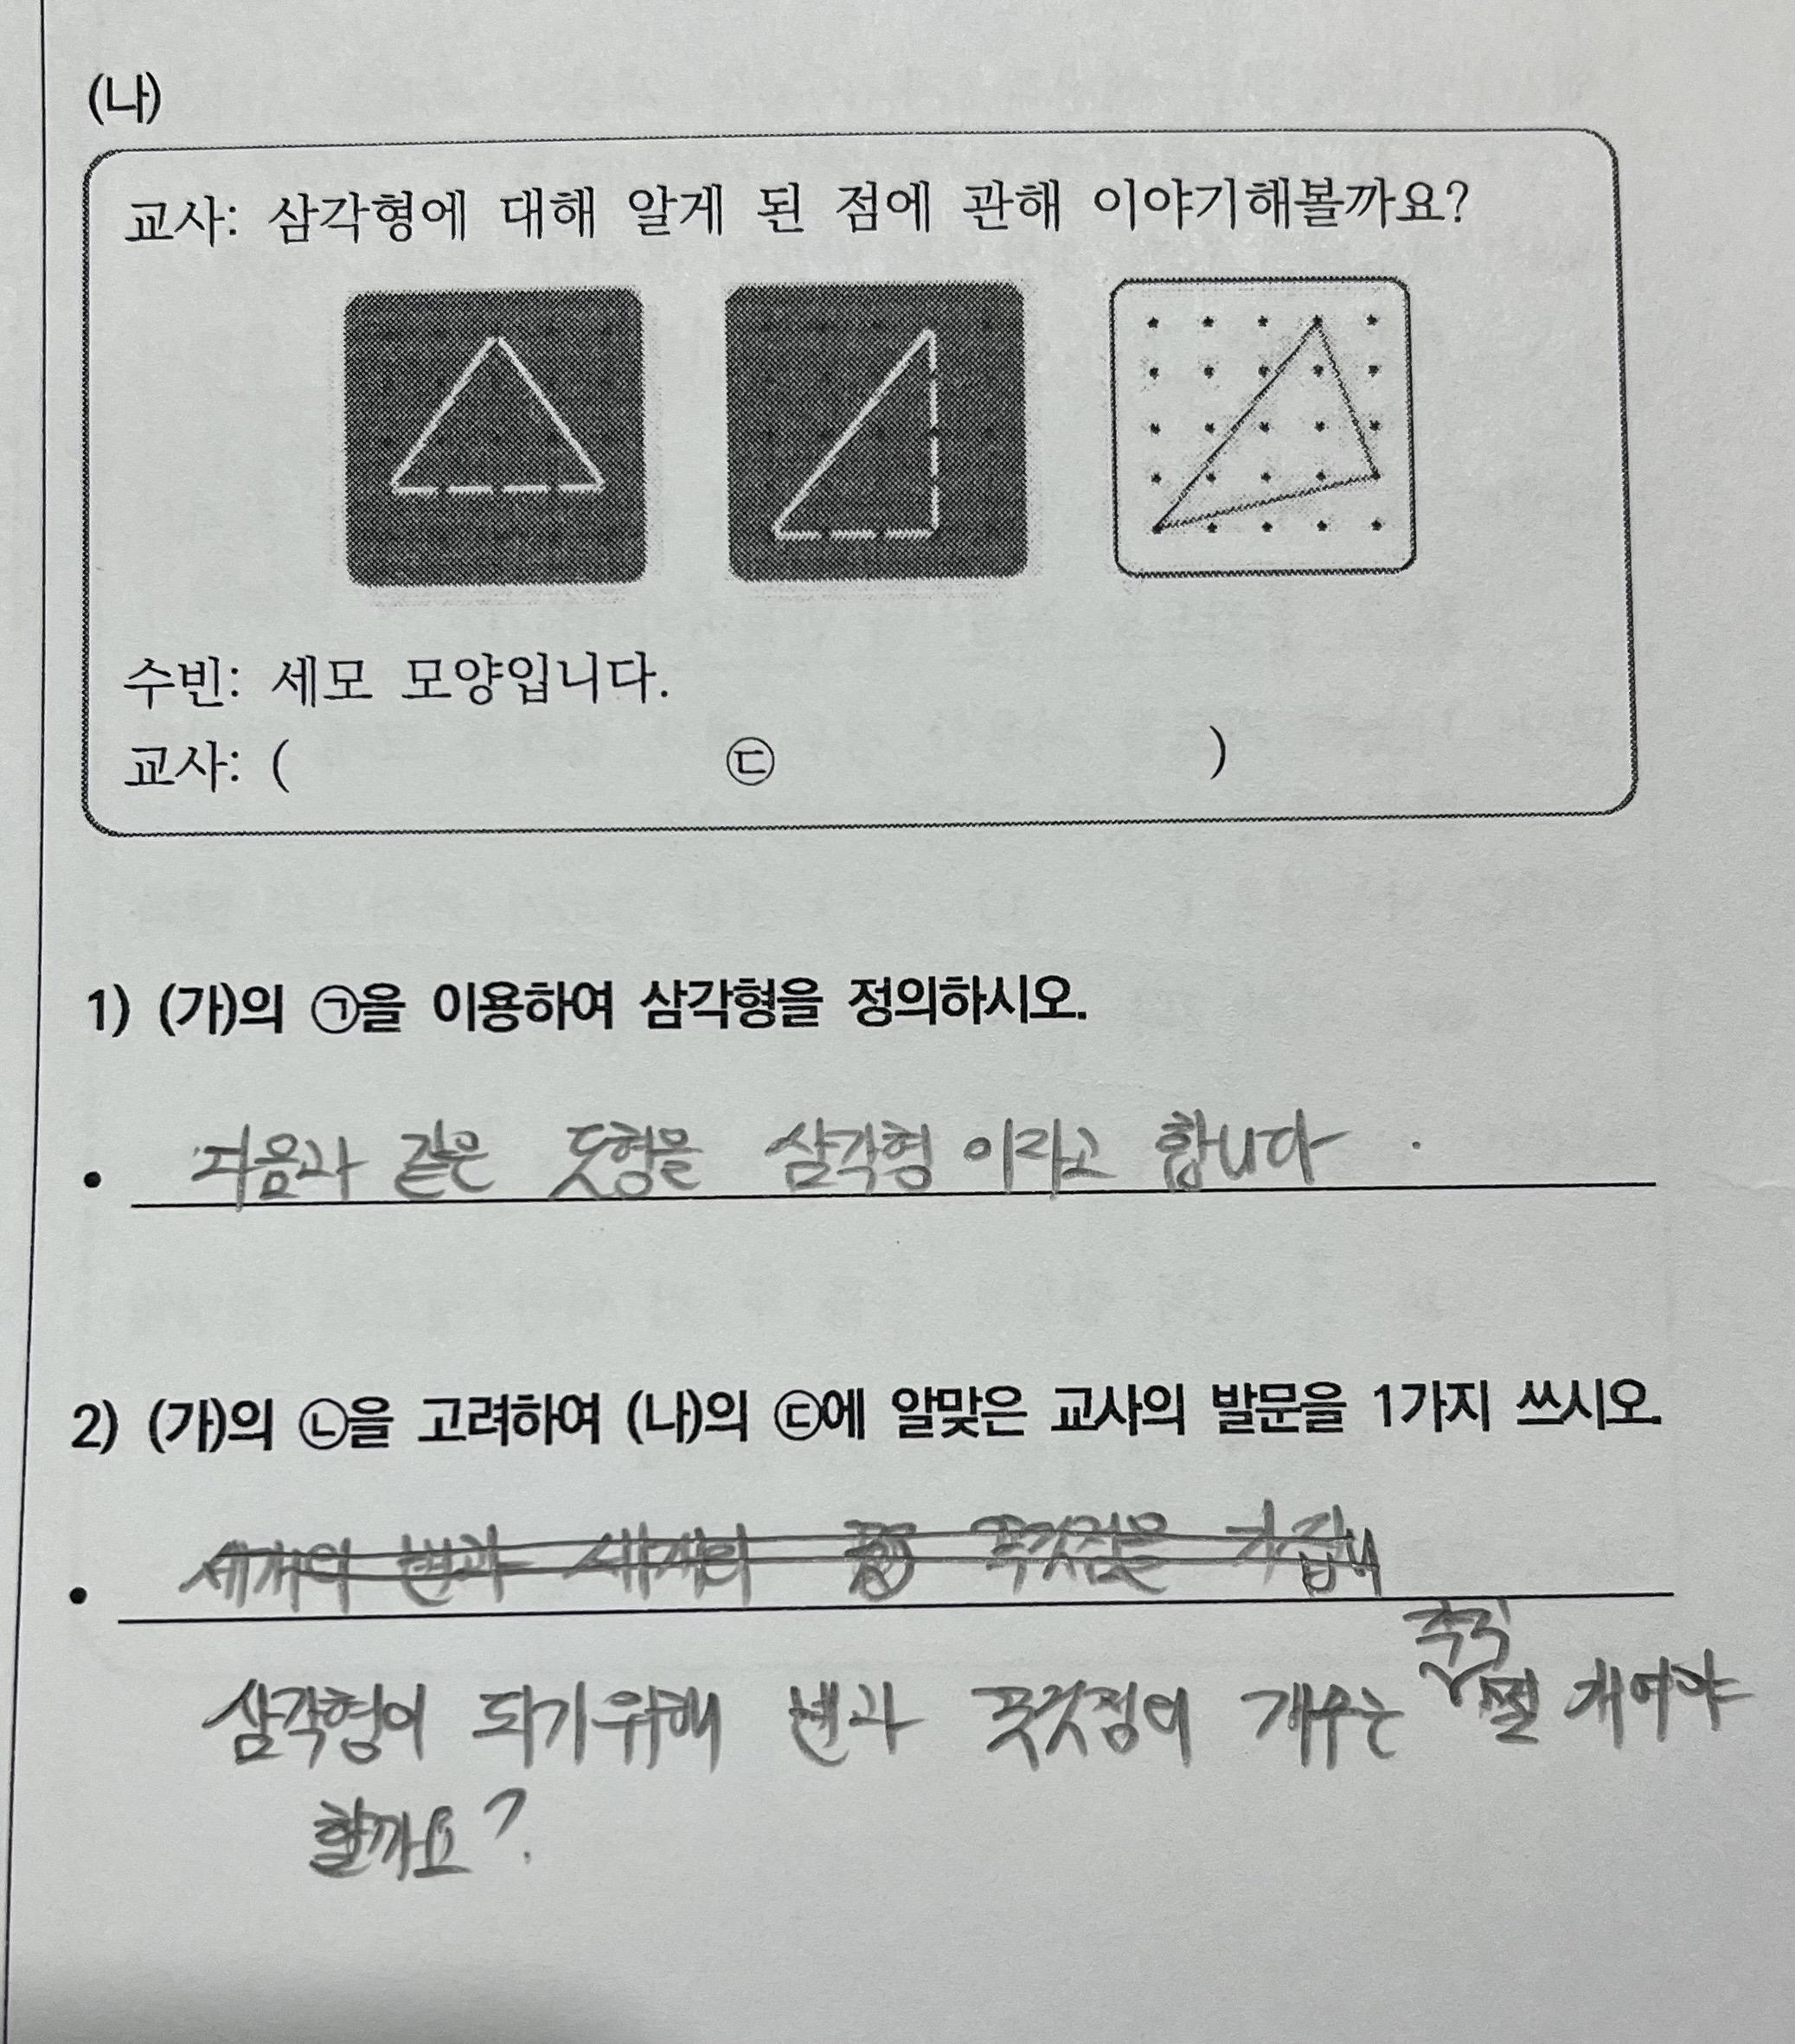 (나)
교사: 삼각형에 대해 알게 된 점에 관해 이야기해볼까요?
수빈: 세모 모양입니다.
교사: ( ㉢ )
1) (가)의 ㉠을 이용하여 삼각형을 정의하시오.
• 다음과 같은 도형을 삼각형 이라고 합니다.
2) (가)의 ㉡을 고려하여 (나)의 ㉢에 알맞은 교사의 발문을 1가지 쓰시오.
• 세개의 변과 세개의 꼭짓점을 가집니
각각
삼각형이 되기위해 변과 꼭짓점의 개수는 몇 개여야
할까요?